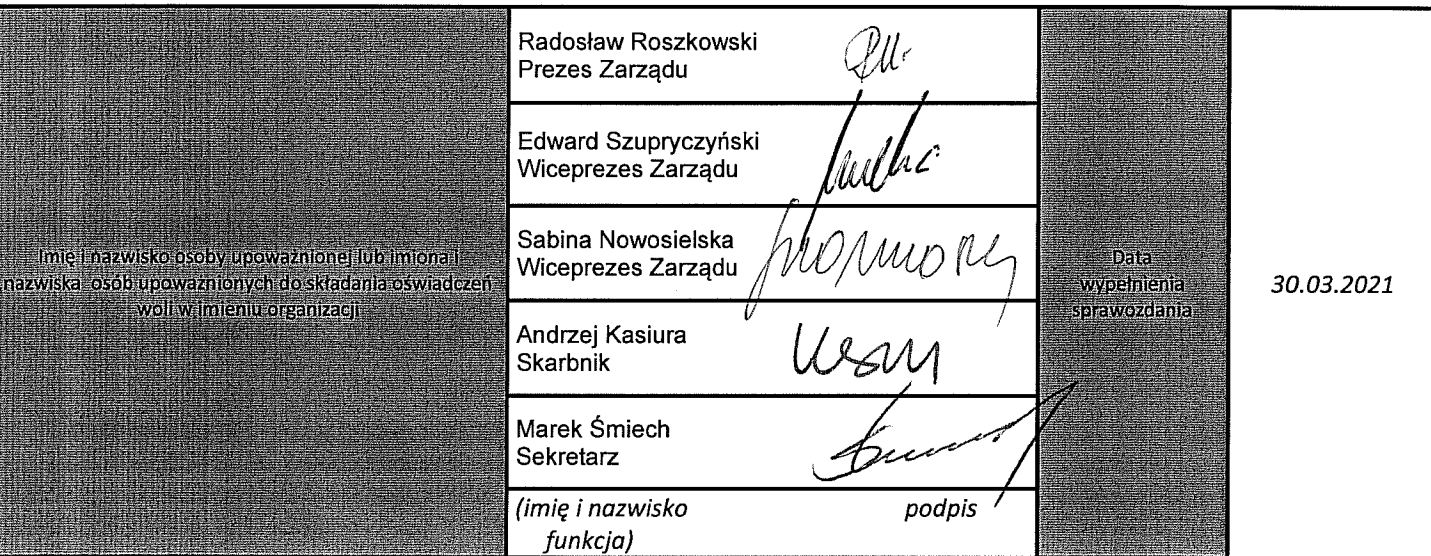 Imię i nazwisko osoby upoważnionej lub imiona i
nazwiska osób upoważnionych do składania oświadczeń
woli w imieniu organizacji
Radosław Roszkowski
Prezes Zarządu
Edward Szupryczyński
Wiceprezes Zarządu
Sabina Nowosielska
Wiceprezes Zarządu
Andrzej Kasiura
Skarbnik
Marek Śmiech
Sekretarz
(imię i nazwisko podpis
funkcja)
Data
wypełnienia
sprawozdania
30.03.2021